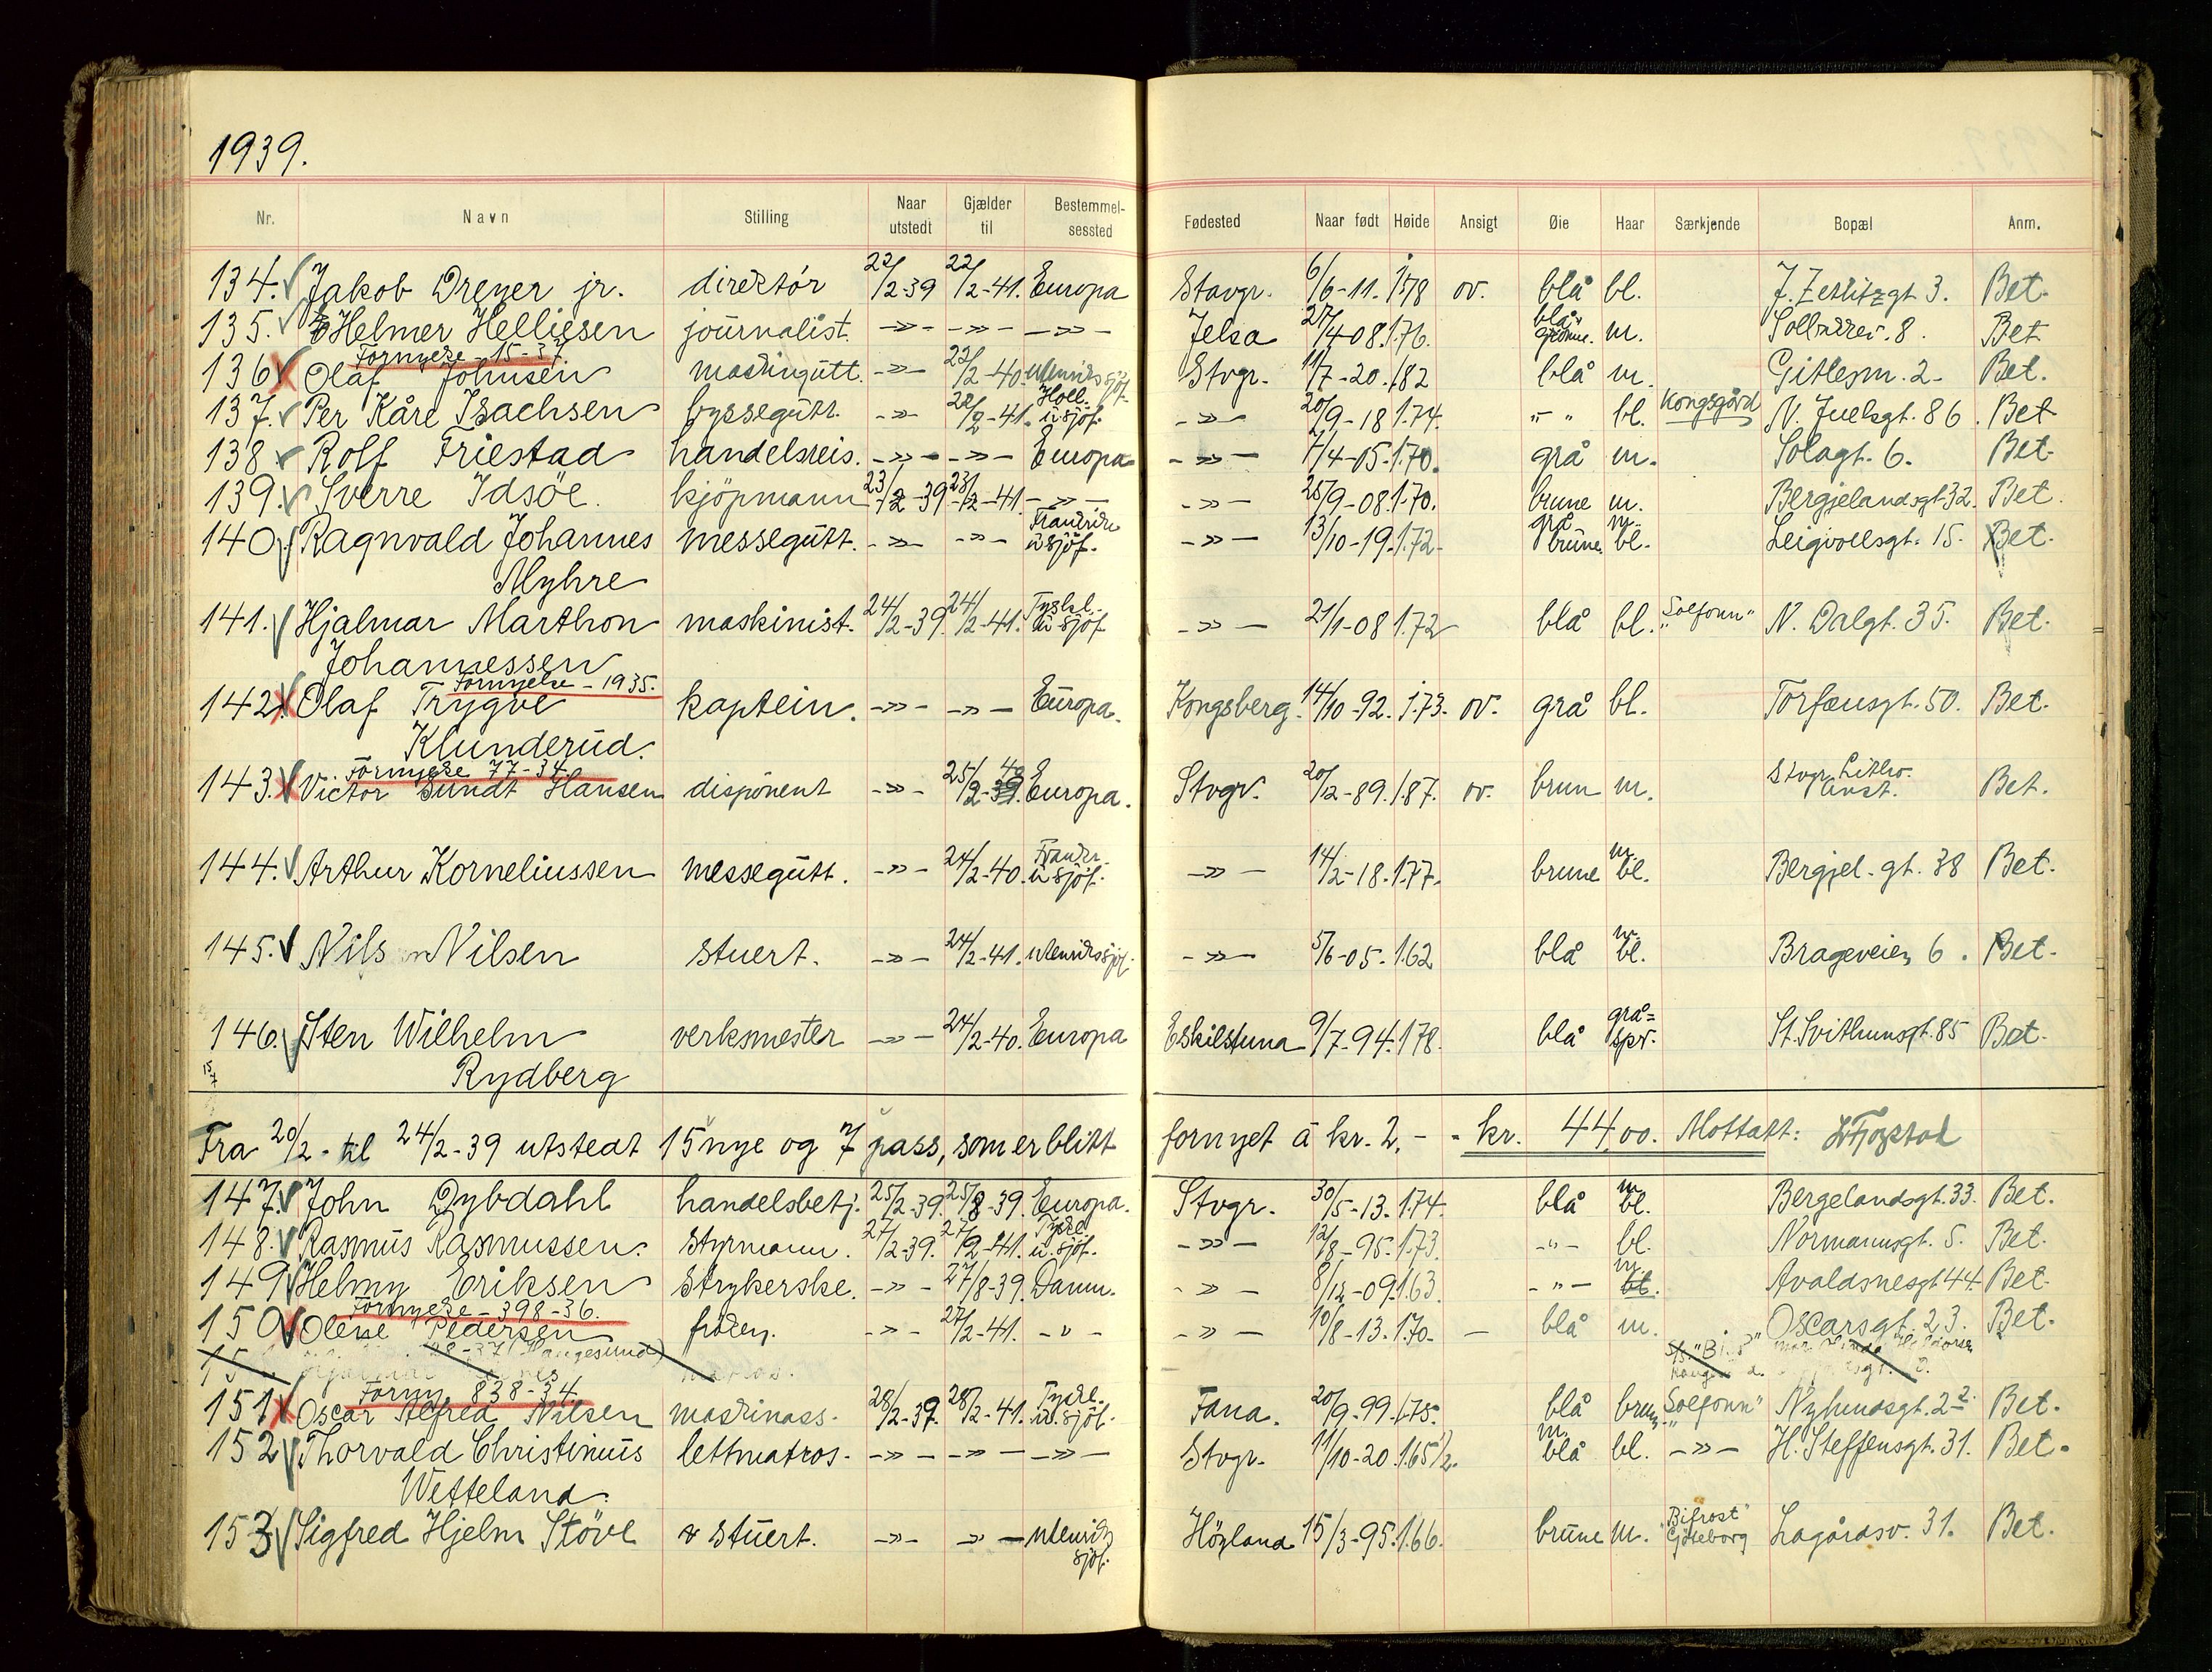 1939.
Nr. Navn Stilling Naar utstedt Gjælder til Bestemmelsessted Fødested Naar født Høide Ansigt Øie Haar Særkjende Bopæl Anm.
134. Jakob Dreyer jr. direktör 22/2-39 22/2-41. Europa Stavgr. 6/6-11. 1.78 ov. blå bl. J. Zetlitzgt. 3. Bet.
135. Helmer Helliesen journalist. -»- -»- -»- Jelsa 27/4-08. 1.76. blå grönne. m. 8. Bet
Fornyelse - 15-37.
136 Olaf Johnsen maskingutt. -»- 22/2-40. utenriks sjöf. Stvgr. 11/7-20. 1.82 blå m. Gitlesm. 2. Bet.
137. Per Kåre Isachsen byssegutt. -»- 22/2-41. Holl. u. sjöf. -»- 20/9-18 1.74. -"- bl. Kongsgård N. Juelsgt. 86. Bet
138. Rolf Friestad handelsreis. -»- -»- Europa -»- 7/4-05. 1.70. grå m. Solagt. 6. Bet.
139. Sverre Idsöe. kjöpmann 23/2-39 23/2-41 -»- -»- 25/9-08. 1.70. brune m. Bergjelandsgt. 32. Bet.
140. Ragnvald Johannes messegutt. -»- -»- Frankrike u sjöf. -»- 13/10-19. 1.72. grå brune. m. bl. 15. Bet.
Myhre
141. Hjalmar Marthon maskinist. 24/2-39. 24/2-41. Tyskl. u sjöf -»- 21/1-08 1.72 blå bl. "Solfonn" N. Dalgt. 35. Bet.
Johannessen
Fornyelse - 1935.
142. Olaf Trygve kaptein. -»- -»- Europa. Kongsberg. 14/10-92. 1.73. ov. grå bl. Torfæusgt. 50. Bet.
Klunderud.
Fornyelse 77-34.
143. Victor Sundt Hansen disponent -»- 25/2-40 Europa. Stvgr. 20/12-89. 1.87. ov. brun m. Stvgr. Litho. Anst. Bet.
144. Arthur Korneliussen messegutt. -»- 24/2-40. Frankr. u sjöf. -»- 14/2-18. 1.77. brune m. bl. Bergjel. gt. 38 Bet.
145. Nils Nilsen stuert. -»- 24/2-41. utenriks sjöf. -»- 5/6-05. 1.62 blå m. bl. Brageveien 6. Bet.
146. Sten Wilhelm verksmester -»- 24/2-40. Europa Eskilstuna 9/7-94. 1.78. blå grå= spr. St. Svithunsgt. 85 Bet.
15/7 Rydberg
Fra 20/2 - til 24/2-39 utstedt 15 nye og 7 pass, som er blitt fornyet á kr. 2,- - kr. 44,00. Mottatt:
147. John Dybdahl handelsbetj. 25/2-39. 25/8-39. Europa. Stvgr. 30/5-13. 1.74. blå m. bl. Bergelandsgt. 33. Bet.
148. Rasmus Rasmussen. styrmann. 27/2-39. 27/2-41. Tyskl. u. sjöf. -»- 12/8-95. 1.73. -"- bl. Normannsgt. 5. Bet.
149 Helmy Eriksen strykerske. -»- 27/8-39. Danm. -»- 8/12-09. 1.63. -"- m. bl. Avaldsnesgt 44. Bet.
Fornyelse - 398-36.
150 Olene Pedersen fröken. -»- 27/2-41. -"- -»- 10/8-13. 1.70. - blå m. Oscarsgt. 23. Bet.
15 28-37 (Haugesund)
Forny. 838-34.
151 Oscar Alfred Nilsen maskinass. 28/2-39. 28/2-41. Tyskl. u. sjöf. Fana. 20/9-99. 1.75. blå brun "Solfonn" Nylundsgt. 22 Bet.
152 Thorvald Christinius lettmatros. -»- -»- -»- Stvgr. 11/10-20. 1.65 1/2. m. blå bl. -»- H. Steffensgt. 31. Bet.
Wetteland.
153 Sigfred Hjelm Stöve stuert. -»- -»- utenriks sjöf. Högland 15/3-95. 1.66. brune m. "Bifrost" Göteborg Lagårdsv. 31. Bet.